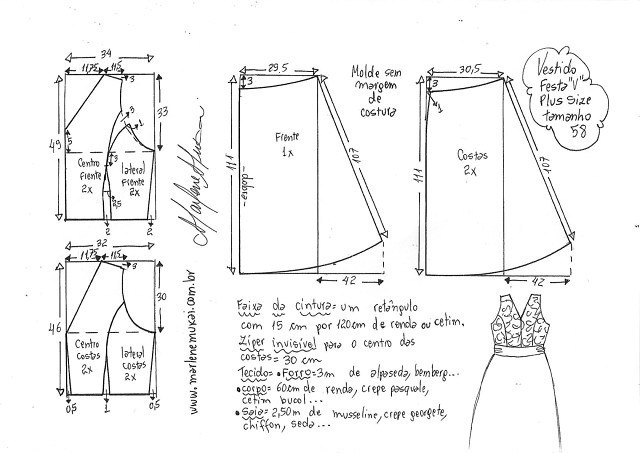 34
11,75
11,5
3
33
49
5
3
1
3
Centro
frente
2x
lateral
frente
2x
2,5
2
2
32
11,75
11,5
3
30
46
Centro
costas
2x
lateral
costas
2x
0,5
1
0,5
Marlene Mukai
www.marlenemukai.com.br
29,5
3
Frente
1x
111
-dobra-
107
42
Molde sem
margem
de
costura
30,5
3
1
Costas
2x
111
107
42
Vestido
Festa "V"
Plus Size
tamanho
58
Faixa da cintura= um retângulo
com 15 cm por 120cm de renda ou cetim.
Zíper invisível para o centro das
costas= 30 cm
Tecido= •Forro=3m de alpaseda, bemberg...
•corpo= 60cm de renda, crepe pasquale,
cetim bucol...
•Saia= 2,50m de musseline, crepe georgete,
chiffon, seda...